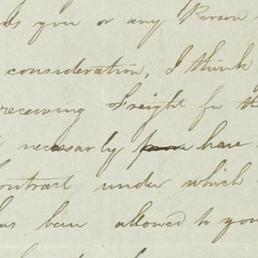 you or any Person
consideration, I think
receiving Freight for th
necessarly have
ontract under which
as been allowed to you